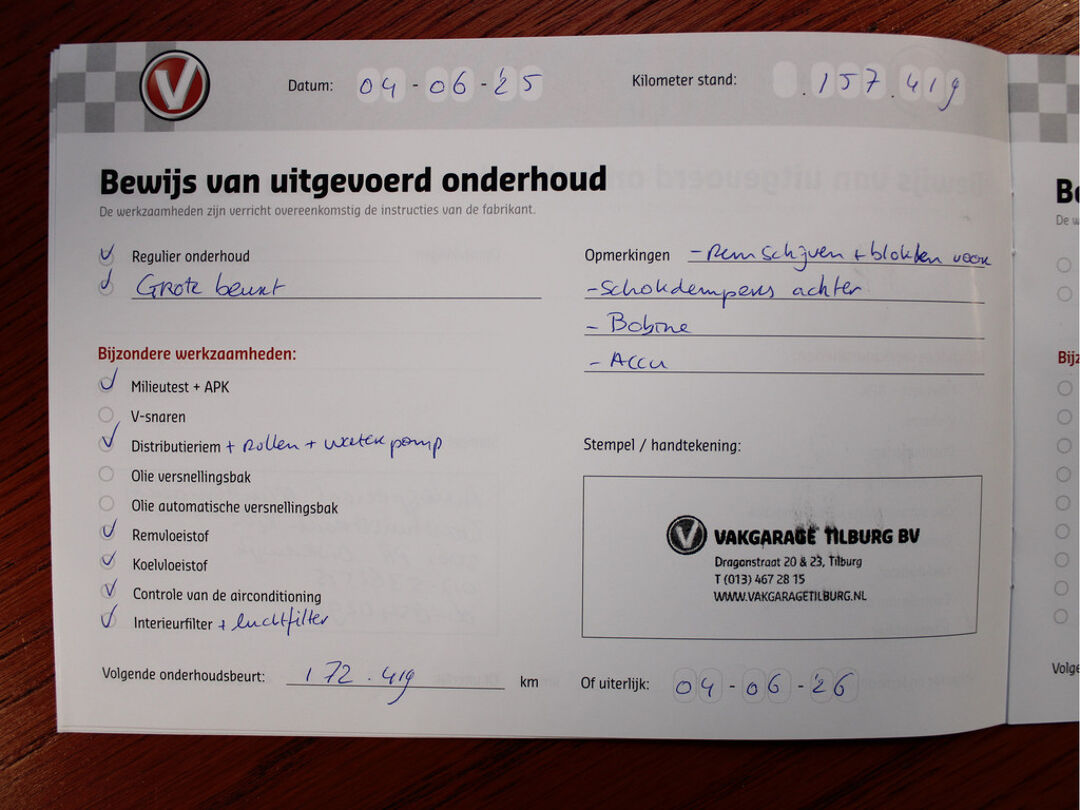 V
Datum: 04-06-'25 Kilometer stand: .157.419
Bewijs van uitgevoerd onderhoud
De werkzaamheden zijn verricht overeenkomstig de instructies van de fabrikant.
Regulier onderhoud
Grote beurt
Opmerkingen - Remschijven + blokken voor
- Schokdempers achter
- Bobine
- Accu
Bijzondere werkzaamheden:
Milieutest + APK
V-snaren
Distributieriem + rollen + waterpomp
Olie versnellingsbak
Olie automatische versnellingsbak
Remvloeistof
Koelvloeistof
Controle van de airconditioning
Interieurfilter + luchtfilter
Stempel / handtekening:
V VAKGARAGE TILBURG BV
Draganstraat 20 & 23, Tilburg
T (013) 467 28 15
WWW.VAKGARAGETILBURG.NL
Volgende onderhoudsbeurt: 172.419 km Of uiterlijk: 04-06-'26
Be
De w
Bijz
Volge